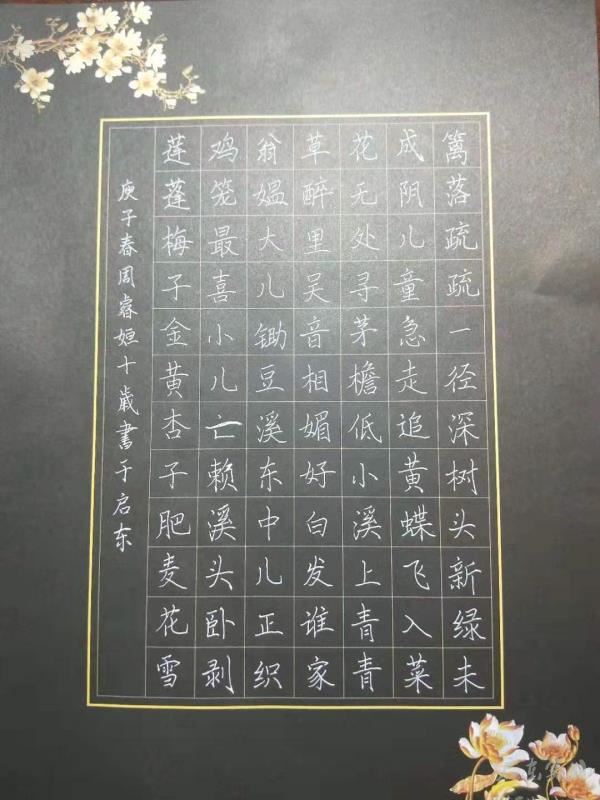 篱落疏疏一径深树头新绿未
成阴儿童急走追黄蝶飞入菜
花无处寻茅檐低小溪上青青
草醉里吴音相媚好白发谁家
翁媪大儿锄豆溪东中儿正织
鸡笼最喜小儿亡赖溪头卧剥
莲蓬梅子金黄杏子肥麦花雪
庚子春周睿姮十歳書于启东